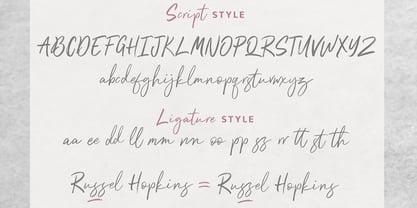 Script STYLE
ABCDEFGHIJKLMNOPQRSTUVWXYZ
abcdefghijklmnopqrstuvwxyz
Ligature STYLE
aa ee dd ll mm nn oo pp ss rr tt st th
Russel Hopkins = Russel Hopkins